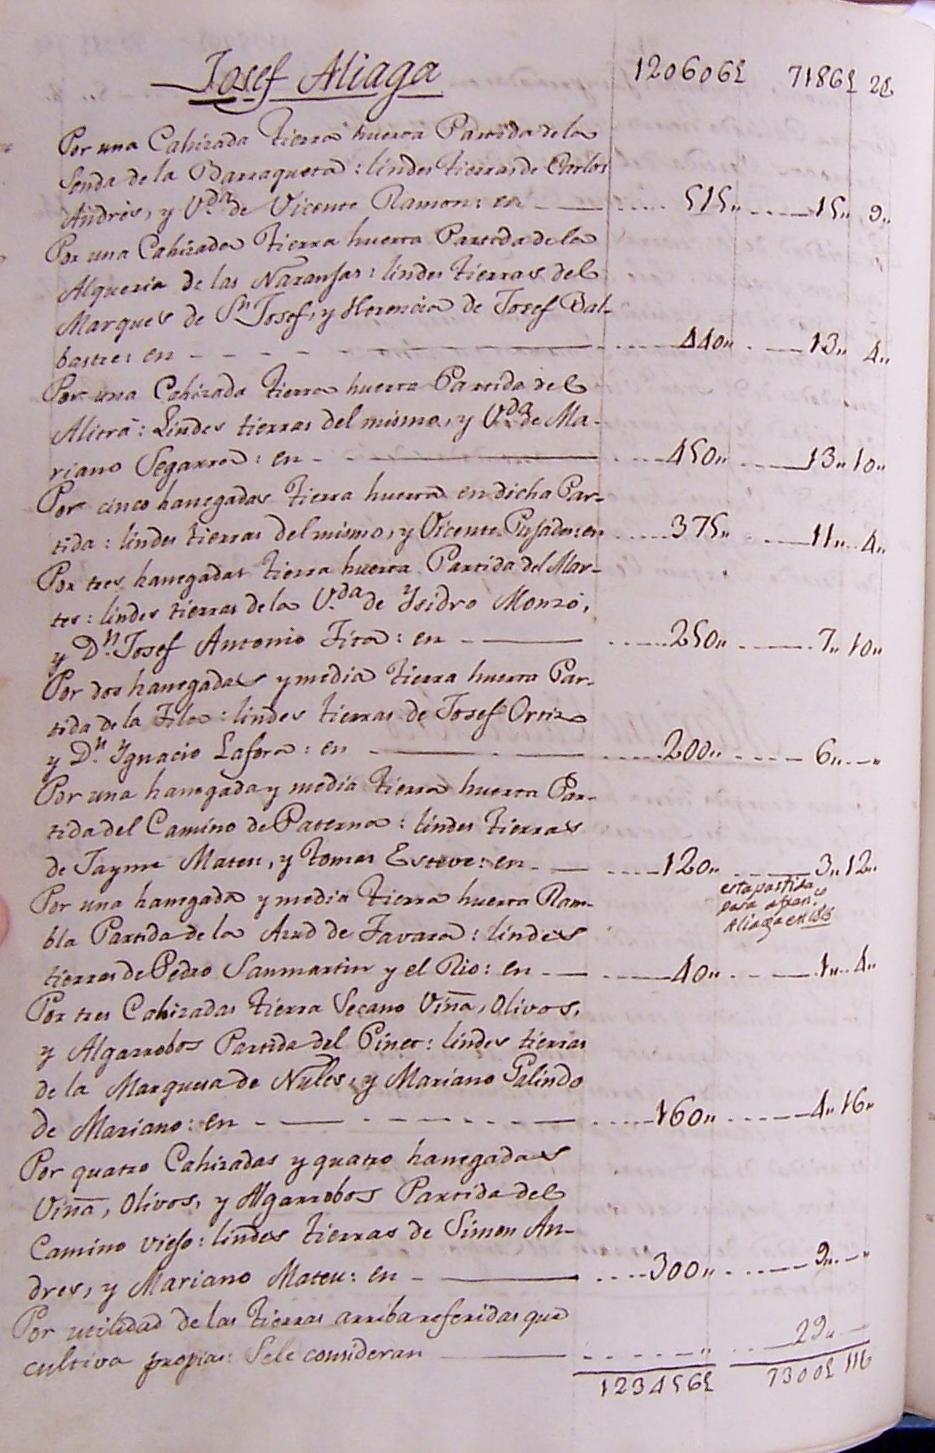 Josef Aliaga 120606£ 7186£ 2S
Por una Cahizada tierra huerta Partida de la
Senda de la Barraqueta: lindes tierras de Carlos
Andres, y V.da de Vicente Ramon: en 515,, 15,, 9,,
Por una Cahizada tierra huerta Partida de la
Alqueria de las Naranjas: lindes tierras del
Marques de Sn Josef, y Herencia de Josef Bal-
bastre: en 440,, 13,, 4,,
Por una Cahizada tierra huerta Partida del
Aliera: Lindes tierras del mismo, y V.da de Ma-
riano Segarra: en 450,, 13,, 10,,
Por cinco hanegadas tierra huerta en dicha Par-
tida: lindes tierras del mismo, y Vicente Pujades: en 375,, 11,, 4,,
Por tres hanegadas tierra huerta Partida del Mar-
tes: lindes tierras de la V.da de Ysidro Monzó,
y Dn. Josef Antonio Fita: en 250,, 7,, 10,,
Por dos hanegadas y media tierra huerta Par-
tida de la Fila: lindes tierras de Josef Ortiz
y Dn. Ygnacio Lafora: en 200,, 6,, —,,
Por una hanegada y media tierra huerta Par-
tida del Camino de Paterna: lindes tierras
de Jayme Mateu, y Tomas Esteve: en 120,, 3,, 12,,
esta partida
pasa a fran.co
Aliaga en
Por una hanegada y media tierra huerta Ram-
bla Partida de la Azud de Favara: lindes
tierras de Pedro Sanmartin y el Rio: en 40,, 1,, 4,,
Por tres Cahizadas tierra Secano Viña, Olivos,
y Algarrobos Partida del Pinet: lindes tierras
de la Marquesa de Nules, y Mariano Galindo
de Mariano: en 160,, 4,, 16,,
Por quatro Cahizadas y quatro hanegadas
Viña, Olivos, y Algarrobos Partida del
Camino viejo: lindes tierras de Simon An-
dres, y Mariano Mateu: en 300,, 9,, —,,
Por utilidad de las tierras arriba referidas que
cultiva propias: Sele consideran ,, 29,, —
123456£ 7300£ 11S